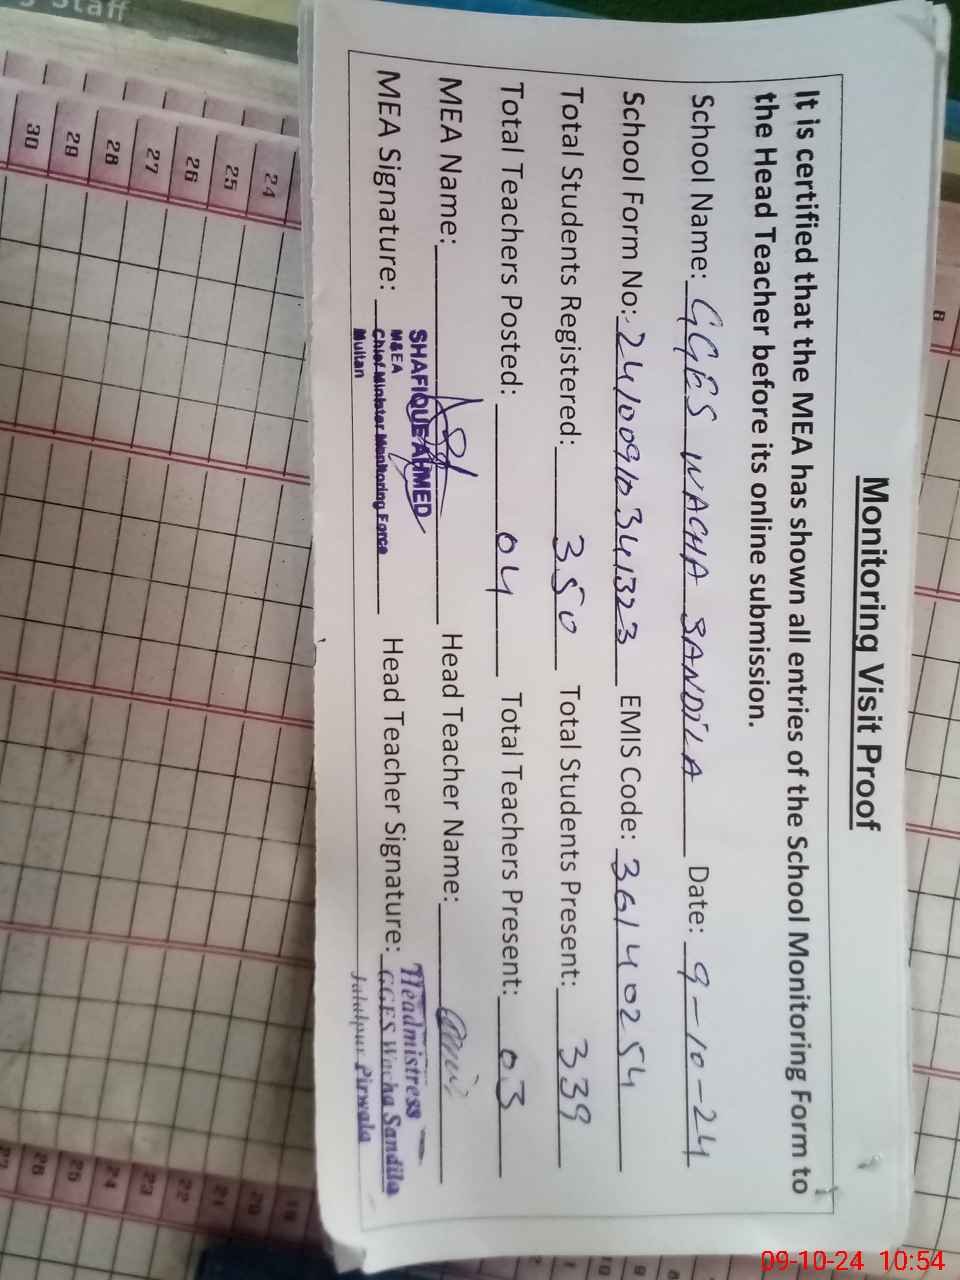 Monitoring Visit Proof
It is certified that the MEA has shown all entries of the School Monitoring Form to
the Head Teacher before its online submission.
School Name: GGES WACHA SANDILA Date: 9-10-24
School Form No: 24100910341323 EMIS Code: 36140254
Total Students Registered: 350 Total Students Present: 339
Total Teachers Posted: 04 Total Teachers Present: 03
MEA Name: Head Teacher Name:
MEA Signature: Head Teacher Signature:
SHAFIQUE AHMED
M&EA
Chief Minister Monitoring Force
Multan
Headmistress
GGES Wacha Sandila
Jalalpur Pirwala
Staff
24
25
26
27
28
29
30
8
19
20
21
22
23
24
25
26
27
09-10-24 10:54